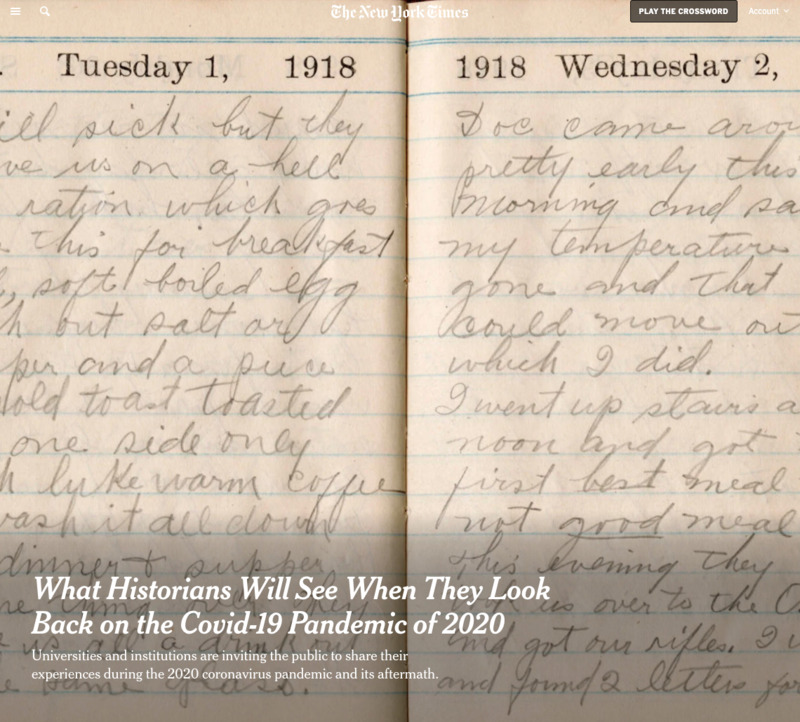 The New York Times
PLAY THE CROSSWORD
Account
Tuesday 1, 1918
ill sick but they
ve us on a hell
ration which goes
this for breakfast
soft boiled egg
h out salt or
per and a piece
old toast toasted
one side only
h luke warm coffee
wash it all down
dinner & supper
same glass.
1918 Wednesday 2,
Doc came arou
pretty early this
morning and sa
my temperature
gone and that
could move out
which I did.
I went up stairs a
noon and got
first best meal
not good meal
this evening they
us over to the
and got our rifles. I
and found 2 letters for
What Historians Will See When They Look
Back on the Covid-19 Pandemic of 2020
Universities and institutions are inviting the public to share their
experiences during the 2020 coronavirus pandemic and its aftermath.